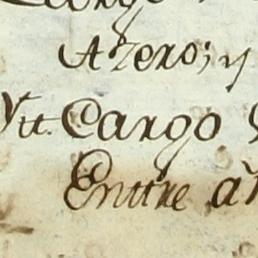 Azero; y
Ytt. Cargo
Enttre